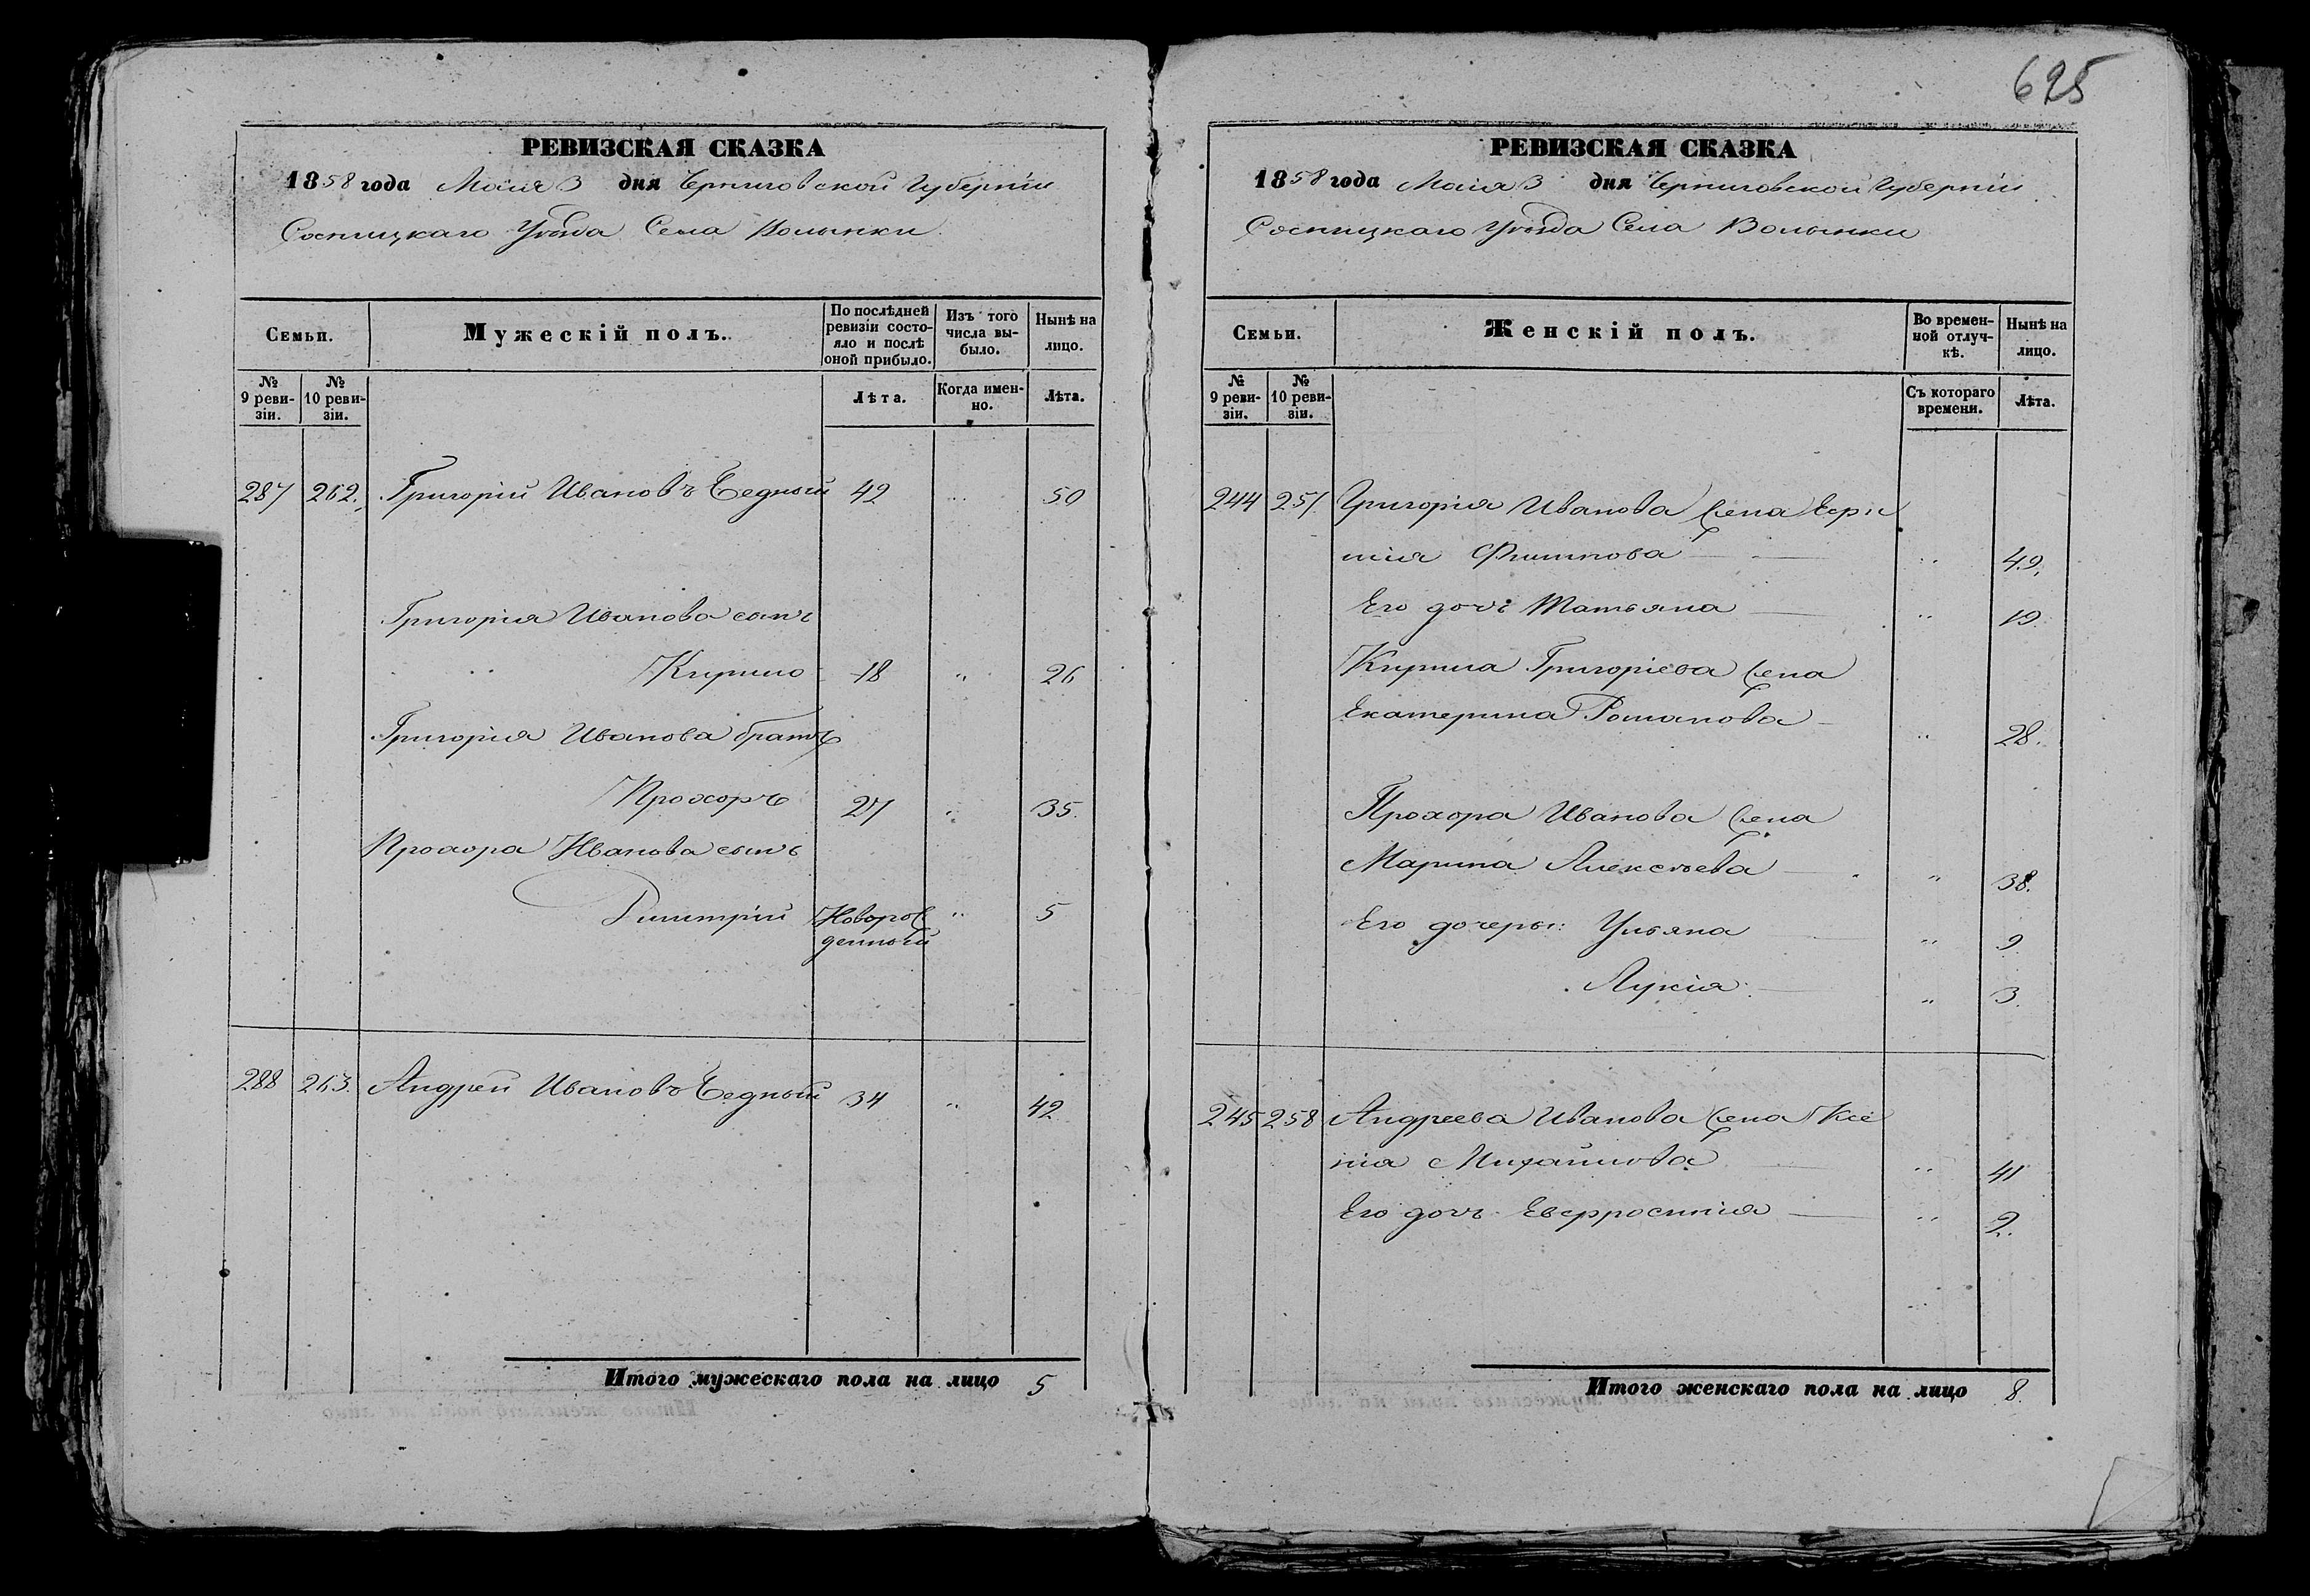 625
РЕВИЗСКАЯ СКАЗКА
1858 года Маія 3 дня Черниговской Губерніи
Сосницкаго Уѣзда Села Волынки
Семьи.
Мужескій полъ.
По послѣдней ревизіи состояло и послѣ оной прибыло.
Изъ того числа выбыло.
Нынѣ на лицо.
№ 9 ревизіи.
№ 10 ревизіи.
Лѣта.
Когда именно.
Лѣта.
287 262. Григорій Ивановъ Бедный 42 " 50
Григорія Иванова сынъ
Кирило 18 " 26
Григорія Иванова братъ
Прохоръ 27 " 35.
Прохора Иванова сынъ
Димитрій Новорож " 5
денный
288 263. Андрей Ивановъ Бедный 34 " 42
Итого мужескаго пола на лицо 5
РЕВИЗСКАЯ СКАЗКА
1858 года Маія 3 дня Черниговской Губерніи
Сосницкаго Уѣзда Села Волынки
Семьи.
Женскій полъ.
Во временной отлучкѣ.
Нынѣ на лицо.
№ 9 ревизіи.
№ 10 ревизіи.
Съ котораго времени.
Лѣта.
244 257. Григорія Иванова жена
Филипова " 49.
Его дочь Татьяна " 19.
Кирила Григоріева жена
Екатерина Романова " 28.
Прохора Иванова жена
Марина Алексѣева " 38.
Его дочеры: Ульяна " 9.
Лукія " 3.
245 258 Андреева Иванова жена Ксе
нія Михайлова " 41
Его дочь Евфросинія " 2.
Итого женскаго пола на лицо 8.